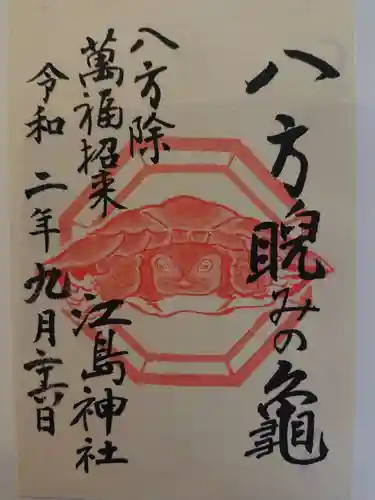 八方睨みの亀
八方除
萬福招来
江島神社
令和二年九月二十六日